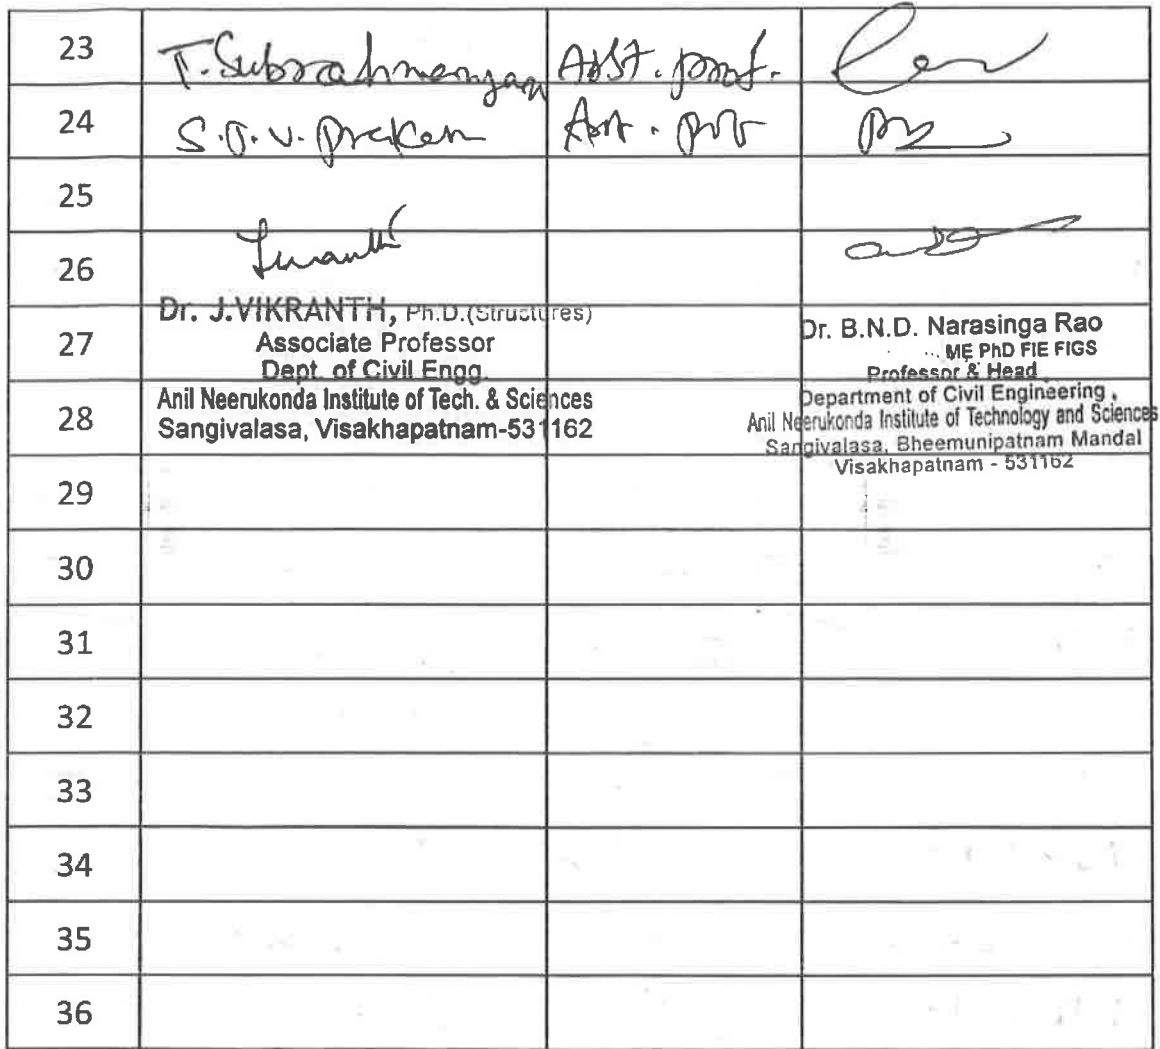 23 T. Subrahmanyam Asst. prof.
24 S.
25
26
27
28
Dr. J.VIKRANTH, Ph.D.(Structures)
Associate Professor
Dept. of Civil Engg.
Anil Neerukonda Institute of Tech. & Sciences
Sangivalasa, Visakhapatnam-531162
Dr. B.N.D. Narasinga Rao
ME PhD FIE FIGS
Professor & Head
Department of Civil Engineering ,
Anil Neerukonda Institute of Technology and Sciences
Sangivalasa, Bheemunipatnam Mandal
Visakhapatnam - 531162
29
30
31
32
33
34
35
36